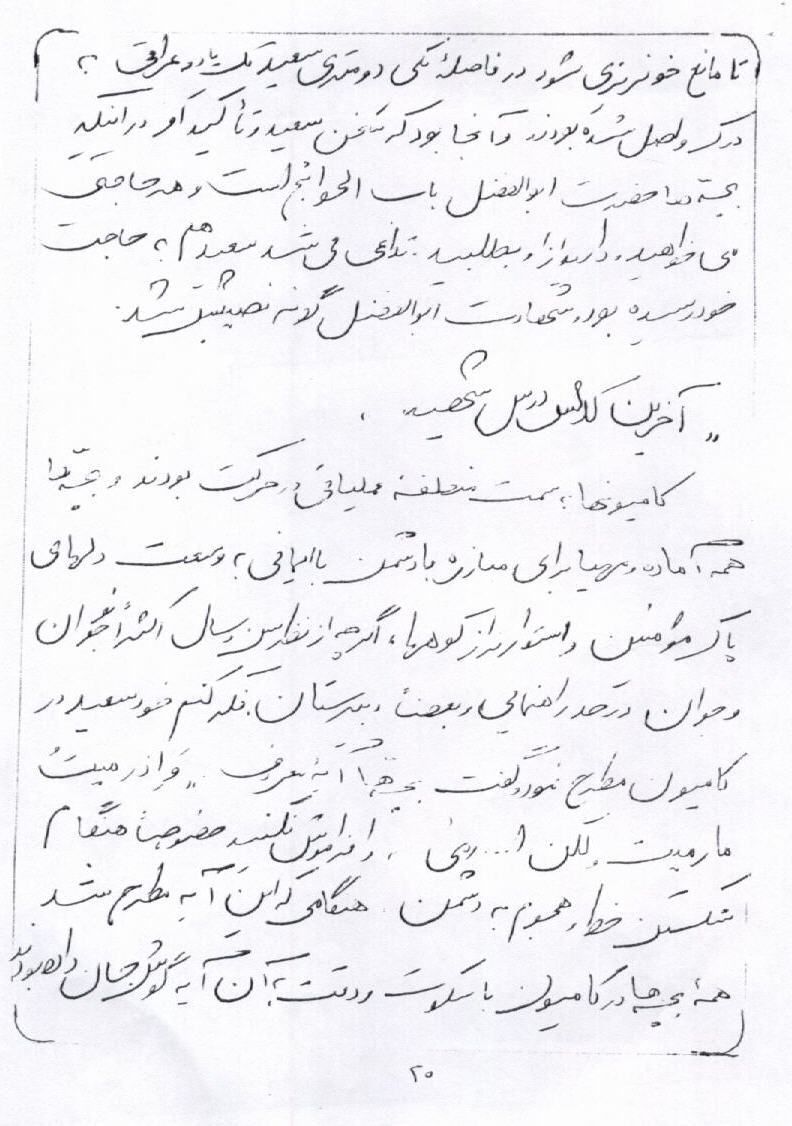 تا مانع خونریزی شود در فاصلهٔ یکی دو متری سعید تک یا دو عراقی به
درک واصل شده بودند و آنجا بود که سخن سعید و تأکید او در اینکه
بچه‌ها حضرت ابوالفضل باب الحوائج است و هر حاجتی
می خواهید و دارید از او بطلبید. تداعی می شد سعید هم به حاجت
خود رسیده بود و شهادت ابوالفضل گونه نصیبش شد.
„ آخرین کلاس درس شهید
کامیونها به سمت منطقه عملیاتی در حرکت بودند و بچّه‌ها
همه آماده و مهیا برای مبارزه با دشمن با ایمانی به وسعت دلهای
پاک مؤمنین و استوارتر از کوهها، اگرچه از نظر سن و سال اکثراً نوجوان
و جوان در حد راهنمایی و بعضاً دبیرستان. فکر کنم خود سعید در
کامیون مطرح نمود و گفت بچه‌ها آیهٔ معروف „ وَ اذ رمیتَ
ما رمیت ولکن ا... رمی ، را فراموش نکنید خصوصاً هنگام
شکستن خط و هجوم به دشمن. هنگامی که این آیه مطرح شد
همهٔ بچه‌ها در کامیون با سکوت و دقت به آن آیه گوش جان داده بودند
۲۰